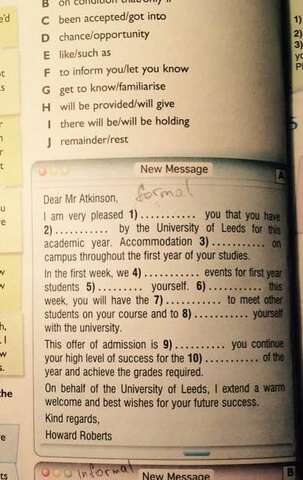 on condition that/only if
C been accepted/got into
D chance/opportunity
E like/such as
F to inform you/let you know
G get to know/familiarise
H will be provided/will give
I there will be/will be holding
J remainder/rest
New Message
A
Dear Mr Atkinson, formal
I am very pleased 1) ........... you that you have
2) ........... by the University of Leeds for this
academic year. Accommodation 3) ........... on
campus throughout the first year of your studies.
In the first week, we 4) ........... events for first year
students 5) ........... yourself. 6) ........... this
week, you will have the 7) ........... to meet other
students on your course and to 8) ........... yourself
with the university.
This offer of admission is 9) ........... you continue
your high level of success for the 10) ........... of the
year and achieve the grades required.
On behalf of the University of Leeds, I extend a warm
welcome and best wishes for your future success.
Kind regards,
Howard Roberts
Informal New Message B